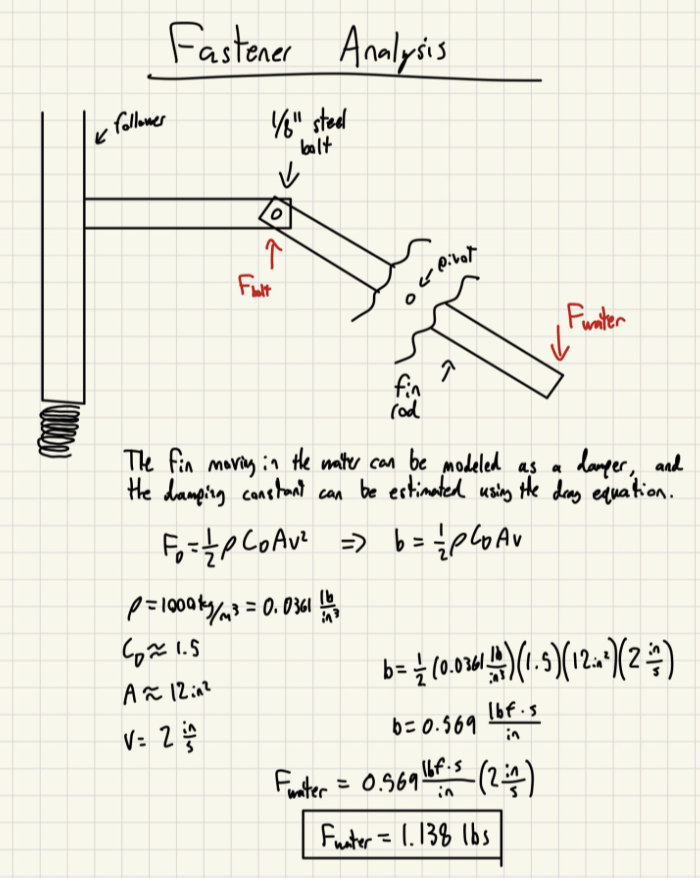 Fastener Analysis
follower
1/8" steel
bolt
F_bolt
pivot
F_water
fin
rod
The fin moving in the water can be modeled as a damper, and
the damping constant can be estimated using the drag equation.
F_D = 1/2 ρ C_D A v² ⇒ b = 1/2 ρ C_D A v
ρ = 1000 kg/m³ = 0.0361 lb/in³
C_D ≈ 1.5
A ≈ 12 in²
V = 2 in/s
b = 1/2 (0.0361 lb/in³)(1.5)(12 in²)(2 in/s)
b = 0.569 lbf·s/in
F_water = 0.569 lbf·s/in (2 in/s)
F_water = 1.138 lbs